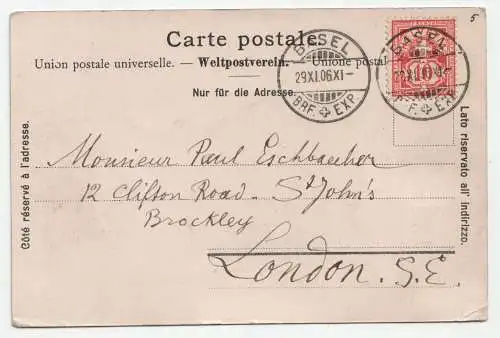 5
Carte postale.
Union postale universelle. — Weltpostverein. — Unione postal
Nur für die Adresse.
BASEL
29.XI.06.XI-
BRF. EXP.
BASEL
10
BRF. EXP.
Côté réservé à l'adresse.
Lato riservato all' indirizzo.
Monsieur Paul Eschbaecher
12 Clifton Road – St John's
Brockley
London. S.E.